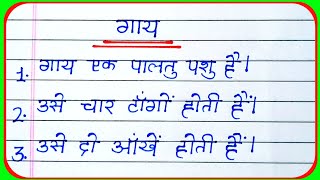 गाय
1. गाय एक पालतु पशु है।
2. उसे चार टांगों होती हैं।
3. उसे दो आंखें होती हैं।